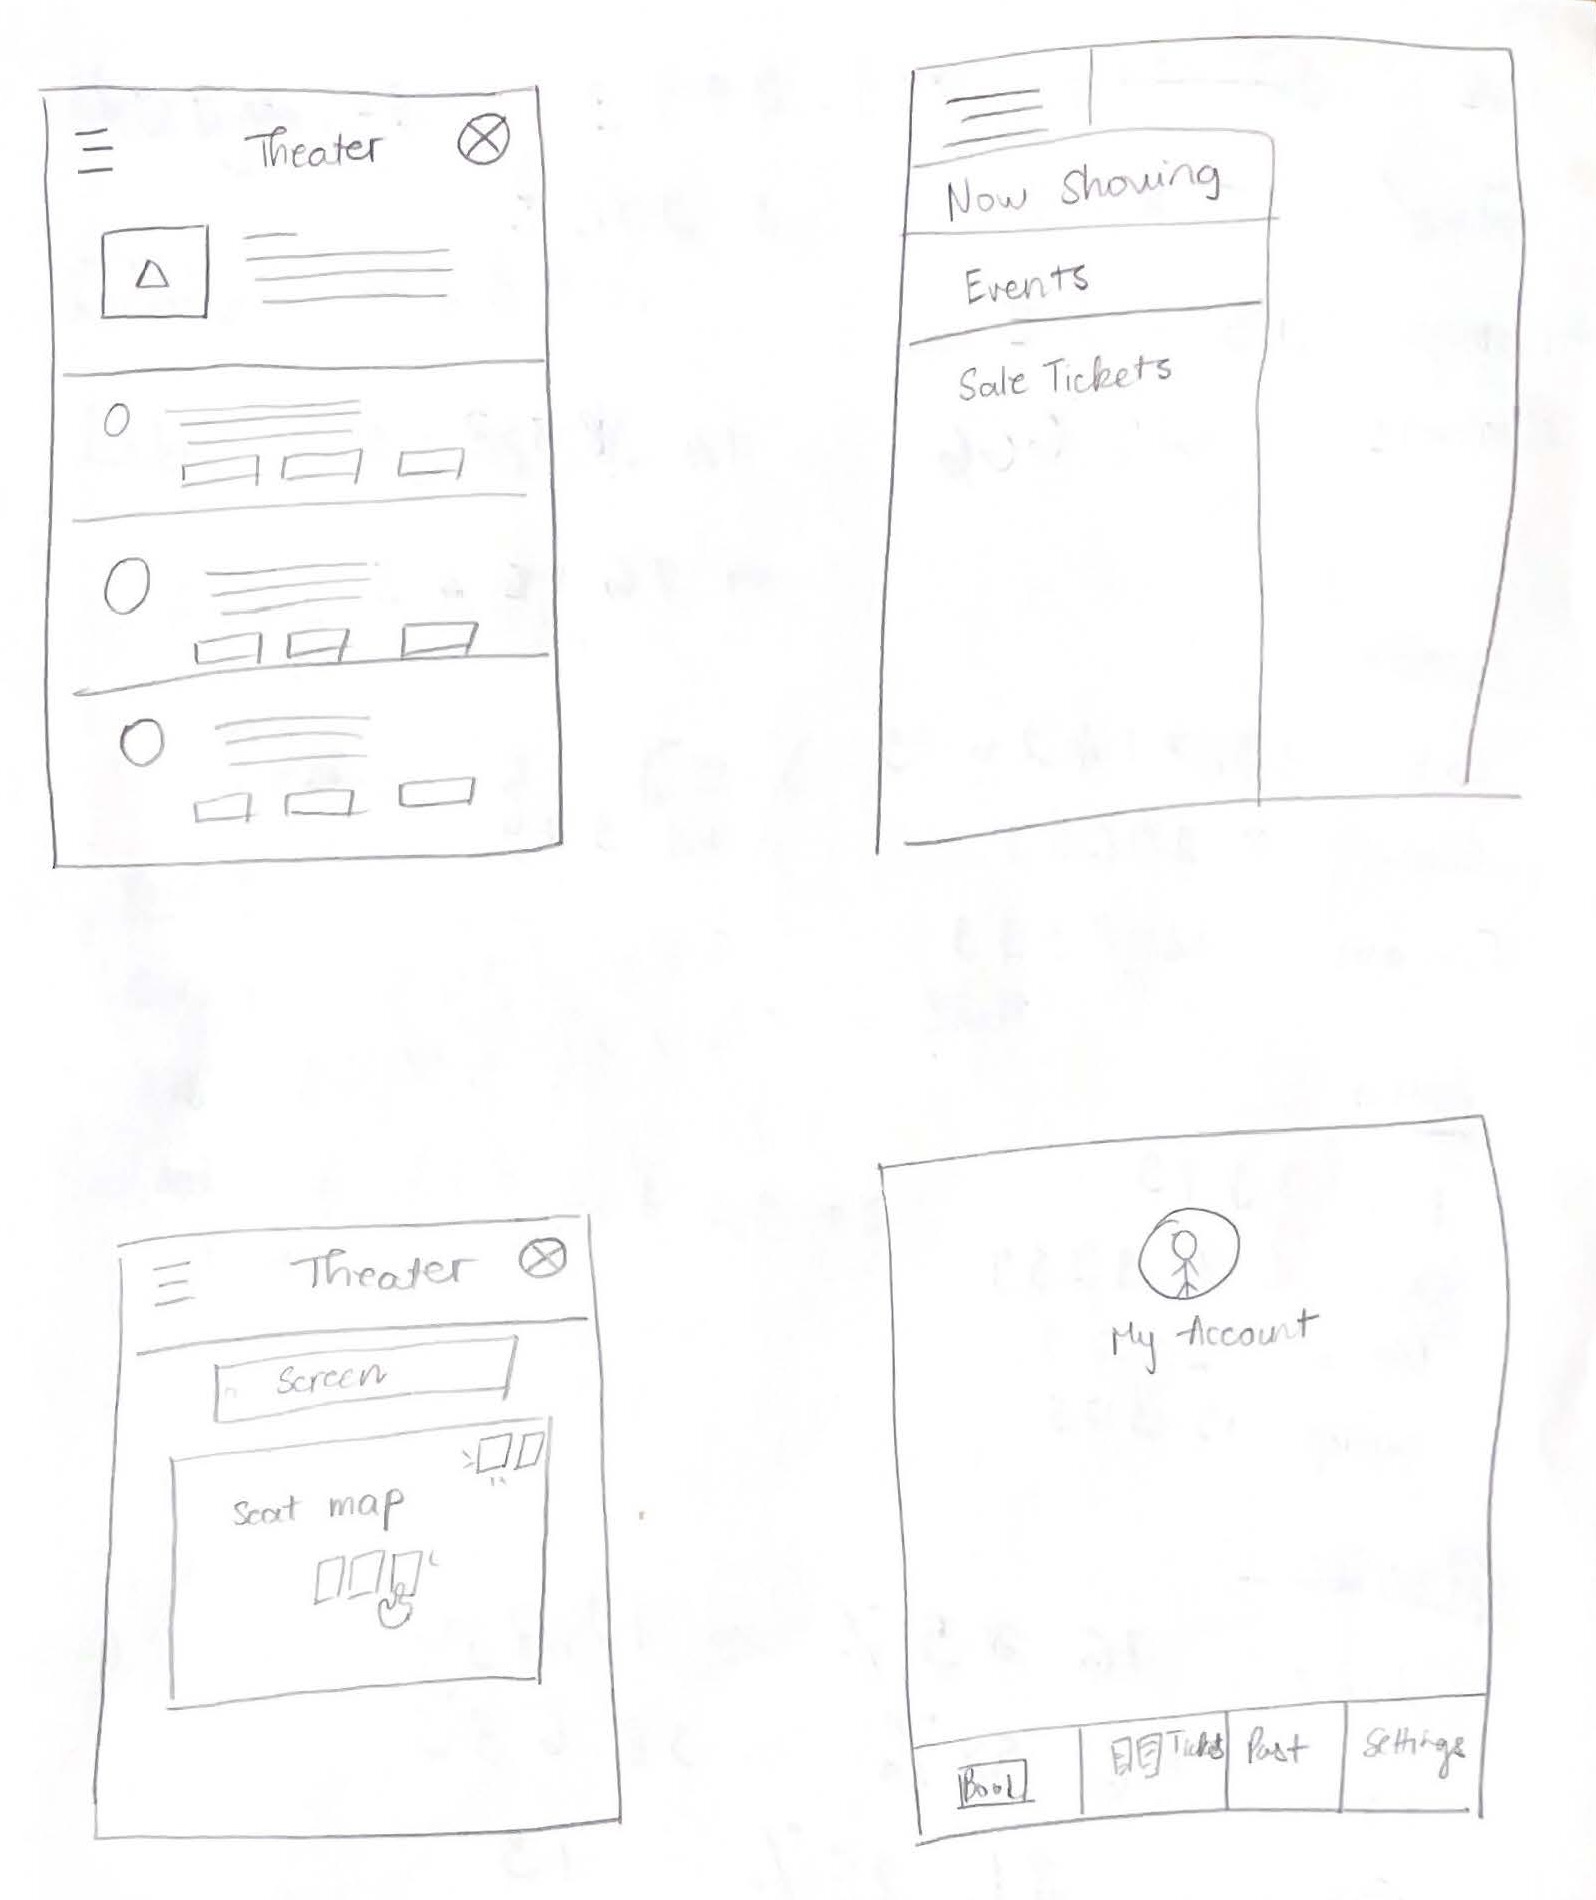 Theater
Now Showing
Events
Sale Tickets
Theater
Screen
Seat map
My Account
Book
Ticket
Past
Settings